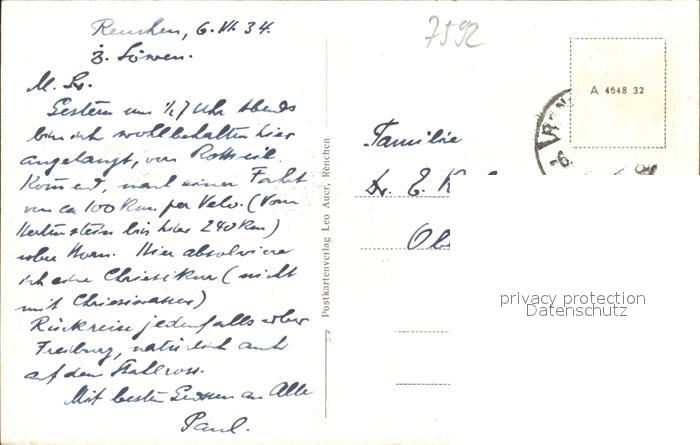 Renchen, 6. VI. 34.
z. Löwen.
M. Lr.
Gestern um ½7 Uhr Abends
bin ich wohlbehalten hier
angelangt, von Rottweil
kommend, nach einer Fahrt
von ca 100 Km per Velo. (Vom
Hertenstein bis hier 240 Km)
über Horn. Hier absolviere
ich eine Chriesikur (nicht
mit Chriesiwasser)
Rückreise jedenfalls über
Freiburg, natürlich auch
auf dem Stahlross.
Mit besten Grüssen an Alle
Paul.
Postkartenverlag Leo Auer, Renchen
7592
A 4648 32
Familie
Dr. E. K
Ol
privacy protection
Datenschutz